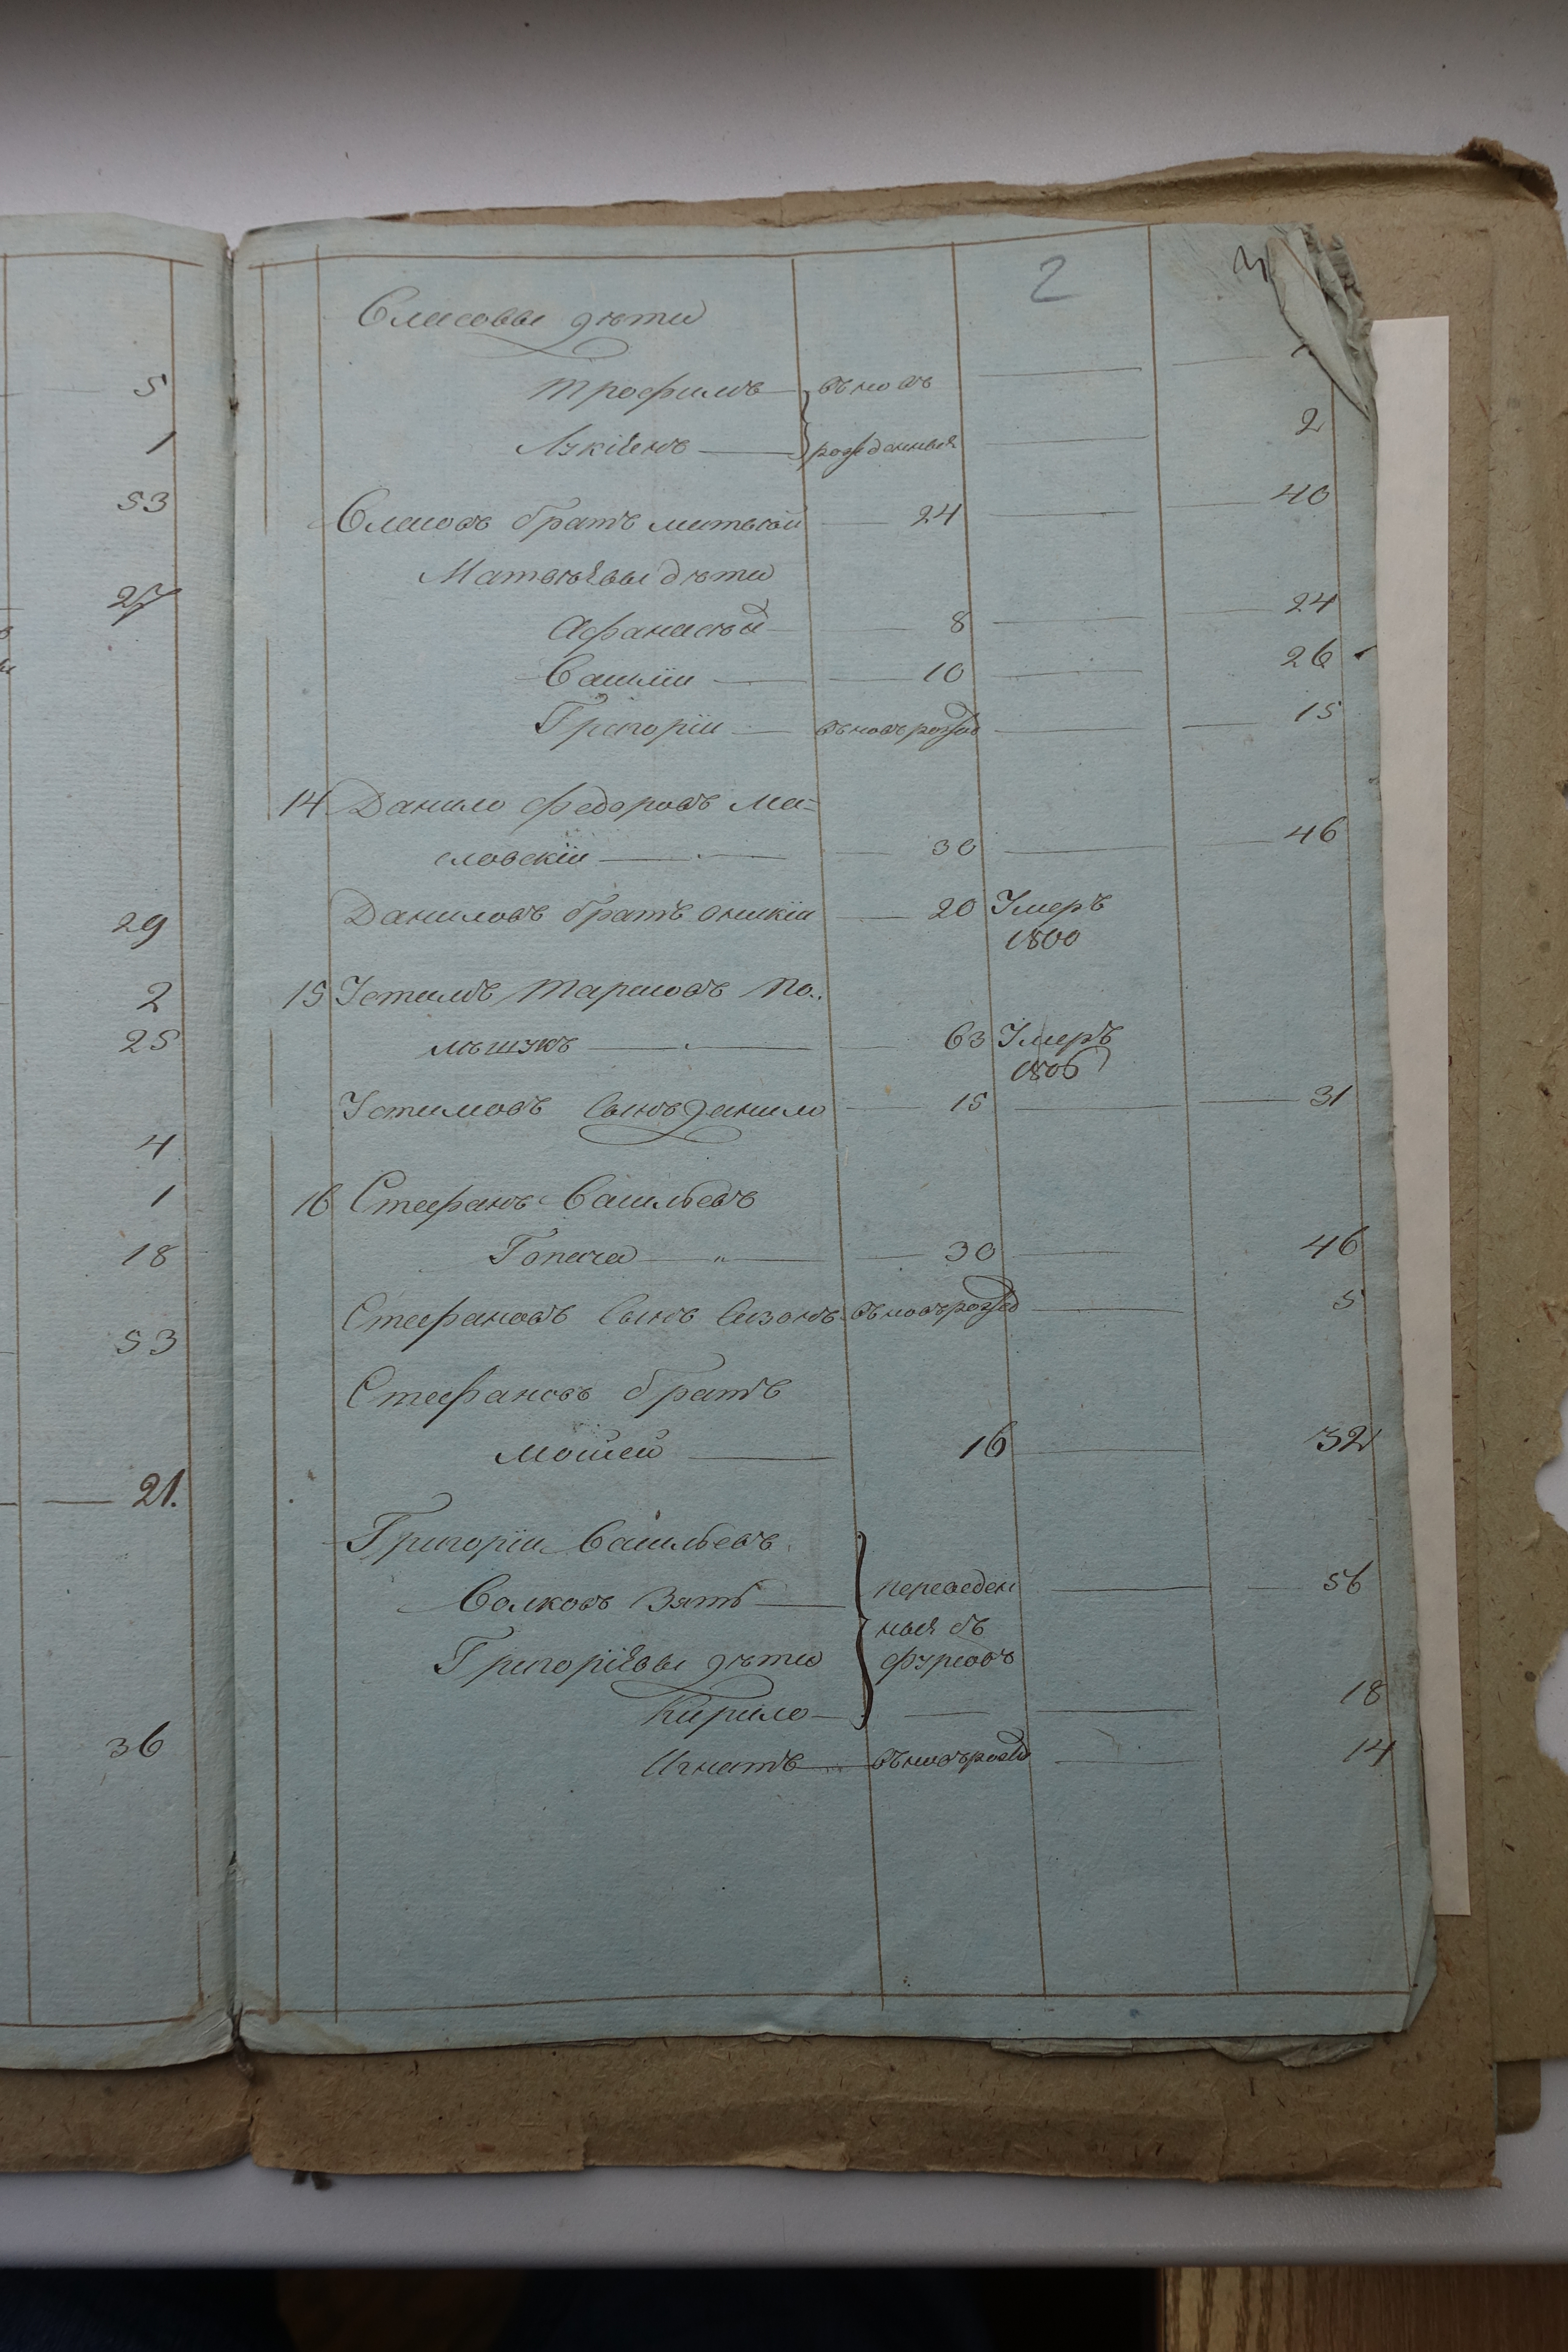 5
1
53
27
29
2
25
4
1
18
53
21.
36
2
3
Власовы дѣти
Трофимъ — въновъ
Лукіянъ — рожденныя — 2
Власовъ братъ матвѣй — 24 — 40
Матвѣевы дѣти
Афанасѣй — 8 — 24
Василіи — 10 — 26
Григоріи — въновърожд — 15
14 Данило федоровъ Ма=
словскіи — 30 — 46
Даниловъ братъ оникіи — 20 Умеръ
1800
15 Устимъ Тарасовъ По..
лѣшукъ — 63 Умеръ
1806
Устимовъ Сынъ данило — 15 — 31
16 Стефанъ Васильевъ
Гопача — „ — 30 — 46
Стефановъ Сынъ Сазонъ въновърожд — 5
Стефановъ братъ
Мойсей — 16 — 32
Григоріи Васильевъ
Волковъ Зять — переведен — 56
ныя съ
Григоріевы дѣти
Кирило — 18
Игнатъ — въновърожд — 14